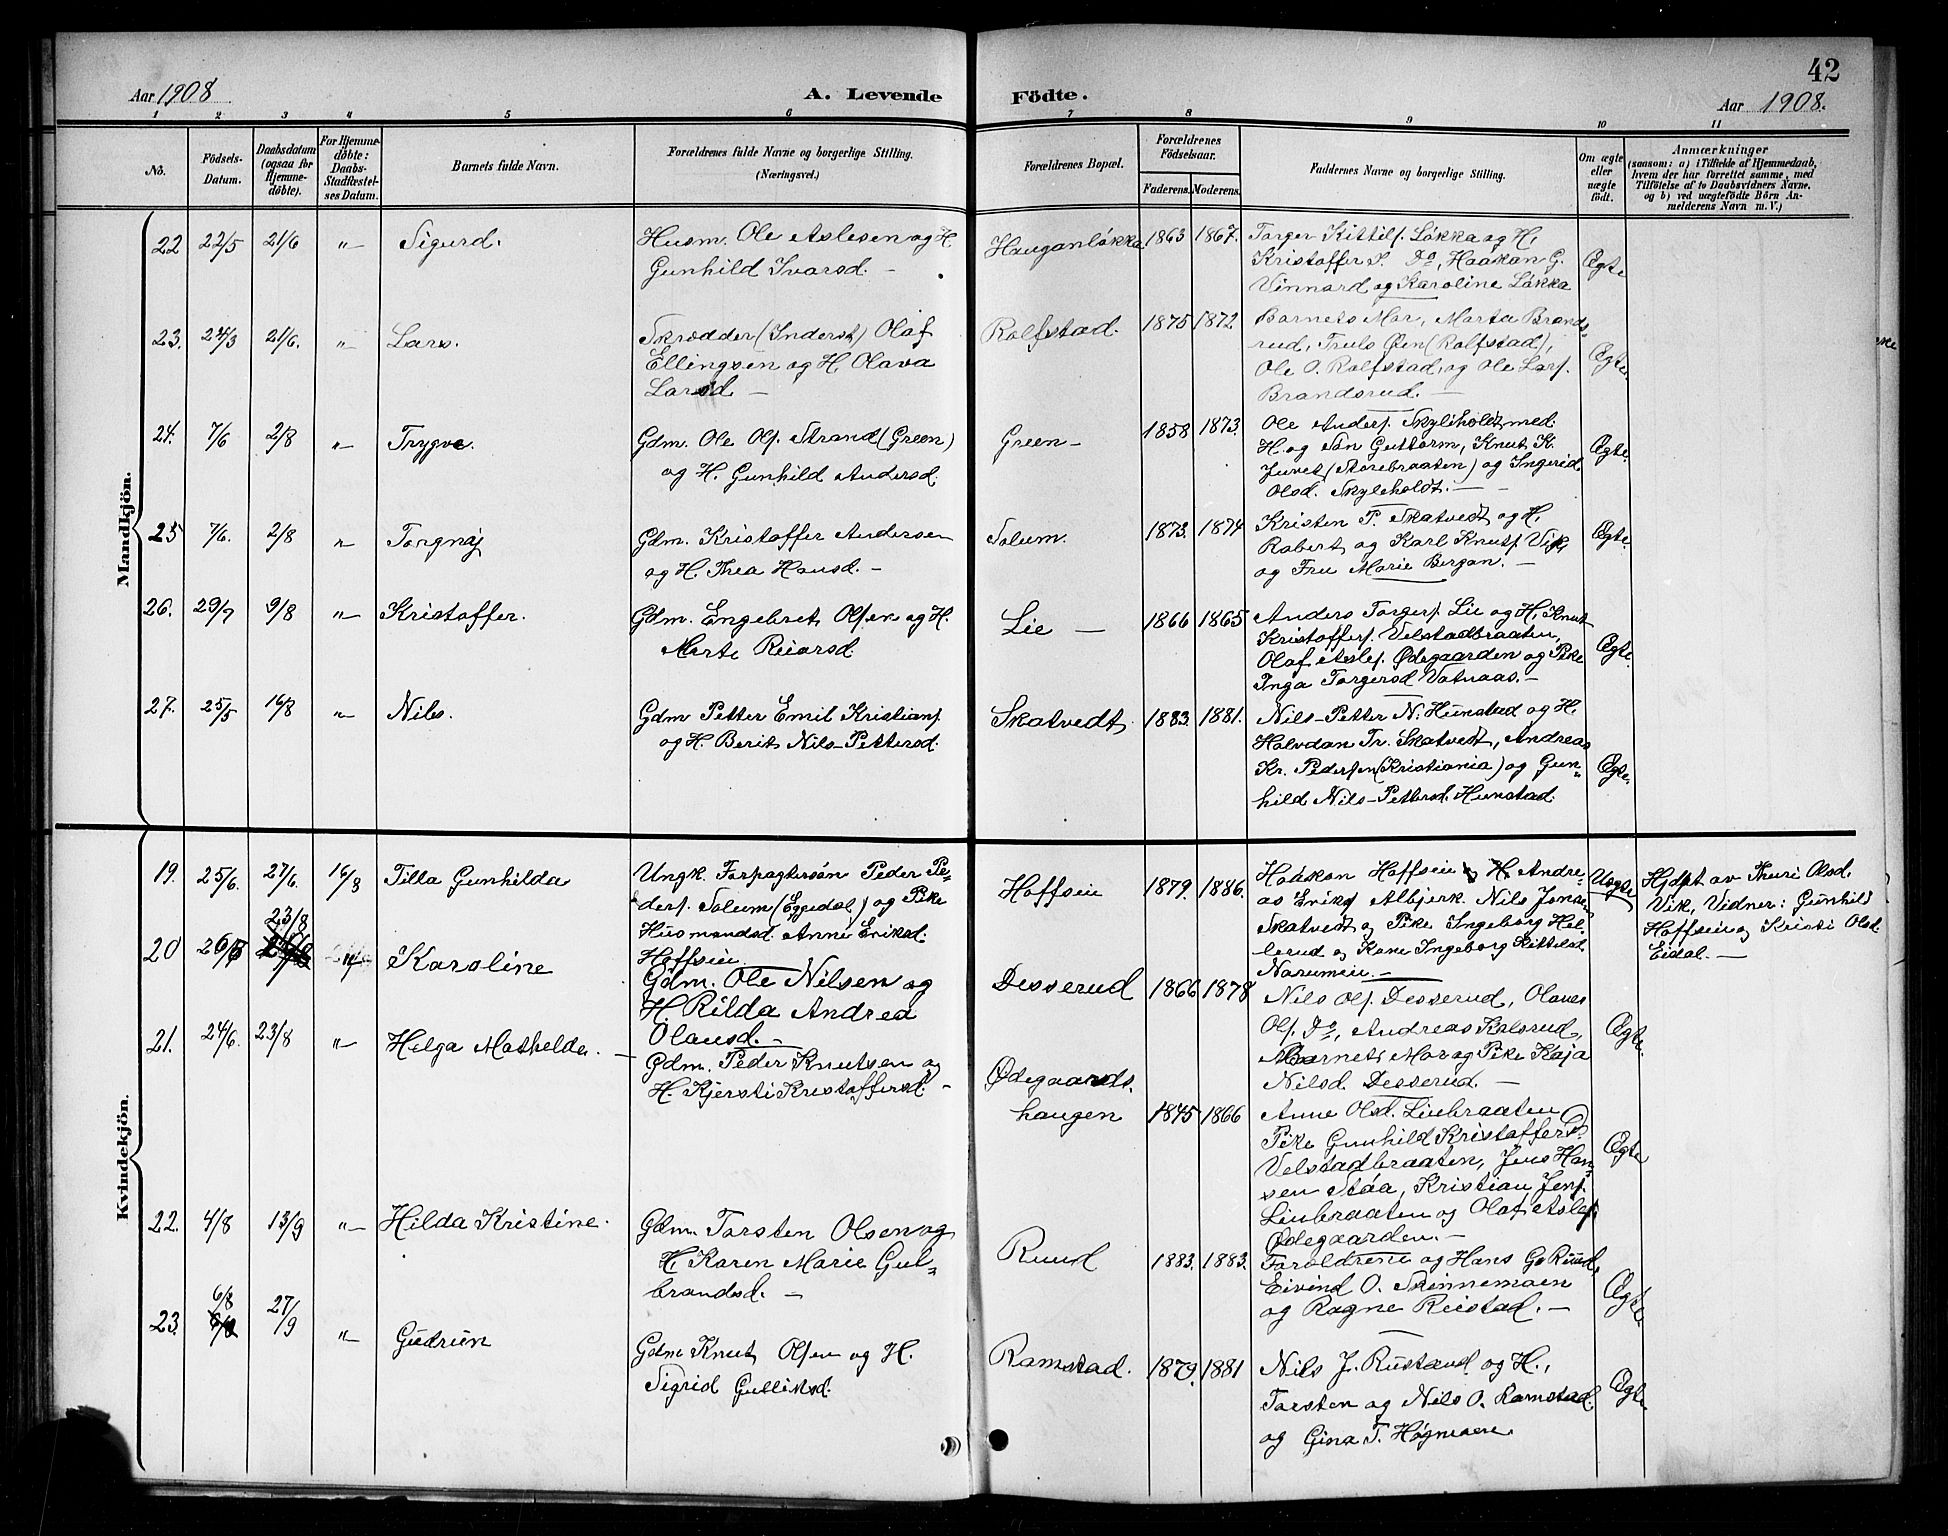 42
Aar 1908
A. Levende Födte.
Aar 1908.
1 2 3 4 5 6 7 8 9 10 11
No.
Födsels-
Datum.
Daabsdatum
(ogsaa for
Hjemme-
döbte).
For Hjemme-
döbte:
Daabs-
Stadfæstel-
ses Datum.
Barnets fulde Navn.
Forældrenes fulde Navne og borgerlige Stilling.
(Næringsvei.)
Forældrenes Bopæl.
Forældrenes
Födselsaar.
Faderens. Moderens.
Faddernes Navne og borgerlige Stilling.
Om ægte
eller
uægte
födt.
Anmærkninger
(saasom: a) i Tilfælde af Hjemmedaab,
hvem der har forrettet samme, med
Tilföielse af to Daabsvidners Navne,
og b) ved uægtefödte Börn An-
melderens Navn m. V.)
Mandkjön.
22 22/5 21/6 „ Sigurd.
Husm. Ole Aslesen og H.
Gunhild Ivarsd. –
Hauganløkka 1863 1867.
Torger Kittils. Løkka og H.
Kristoffer T. Do, Haakan G.
Vinnard og Karoline Løkka
Ægte
23. 24/3 21/6. „ Lars.
Skrædder (Inderst) Olaf
Ellingsen og H. Olava
Larsd. –
Rolfstad. 1875 1872.
Barnets Mor, Marta Brands-
rud, Truls Øen (Rolfstad),
Ole O. Rolfstad, og Ole Lars.
Brandsrud. –
Ægte.
24. 7/6 2/8 „ Trygve.
Gdm. Ole Ols. Strand (Green)
og H. Gunhild Andersd.
Green – 1858 1873.
Ole Anders. Skyleholdt med
H. og Søn Guttorm, Knut K.
Juvet (Storebraaten) og Ingerid
Olsd. Skyleholdt. –
Ægte.
25 7/6. 2/8 „ Torgnøj
Gdm. Kristoffer Andersen
og H. Thea Hansd. –
Solum. 1873. 1874
Kristen P. Skatvedt og H.
Robert og Karl Knuts. Vik,
og Fru Marie Bergan. –
Ægte.
26. 29/7 9/8 „ Kristoffer.
Gdm. Engebret Olsen og H.
Marte Reiarsd
Lie – 1866 1865
Anders Torgers. Lie og H. Knut
Kristoffers. Velstadbraaten,
Olaf Asles. Ødegaarden og Pike
Inga Torgersd Vatnaas. –
Ægte.
27. 25/5 16/8 „ Nils.
Gdm Petter Emil Kristians.
og H. Berit Nils-Pettersd.
Skatvedt 1883. 1881.
Nils-Petter N. Hunstad og H.
Halvdan Tr. Skatvedt, Andreas
Kr. Pedersen (Kristiania) og Gun-
hild Nils-Pettersd. Hunstad.
Ægte.
Kvindekjön.
19. 25/6. 27/6. 16/8 Tilla Gunhilda
Ungk. Forpagtersøn Peder Pe-
ders. Solum (Eggedal) og Pike
Husmandsd. Anne Eriksd.
Hoffseie.
Hoffseie 1879. 1886.
Haakan Hoffseie og H. Andre-
as Eriks Albjerk. Nils Jensen
Skatvedt og Pike Ingeborg Hol-
lerud og Kone Ingeborg Kittelsd.
Narumeie. –
Uægte
Hjdpt av Thuri Olsd.
Vik, Vidner: Gunhild
Hoffseie og Kristi Olsd.
Eidal. –
20 26/6 23/8 „ Karoline
Gdm. Ole Nilsen og
H. Rilda Andrea
Olausd. –
Desserud 1866 1878
Nils Ols. Desserud, Olaves
Ols. Do, Andreas Kolsrud,
Barnets Mor og Pike Kaja
Nilsd. Desserud. –
Ægte.
21. 24/6. 23/8 „ Helga Mathelde. –
Gdm. Peder Knutsen og
H. Kjersti Kristoffersd. –
Ødegaards-
haugen 1845 1866
Anne Olsd. Liebraaten
Pike Gunhild Kristoffersd.
Velstadbraaten, Jens Han-
sen Staa, Kristian Jens.
Liebraaten og Olaf Asles.
Ødegaarden. –
Ægte
22. 4/8 13/9 „ Hilda Kristine.
Gdm. Torsten Olsen og
H. Karen Marie Gul-
brandsd. –
Ruud 1883. 1883.
Foroldrene og Hans G. Ruud,
Eivind O. Skinnemoen
og Ragne Reistad. –
Ægte.
23. 6/8 27/9 „ Gudrun
Gdm Knut Olsen og H.
Sigrid Gulliksd.
Ramstad. 1879. 1881
Nils J. Rustand og H.,
Torsten og Nils O. Ramstad.
og Gina T. Høgmoen.
Ægte.